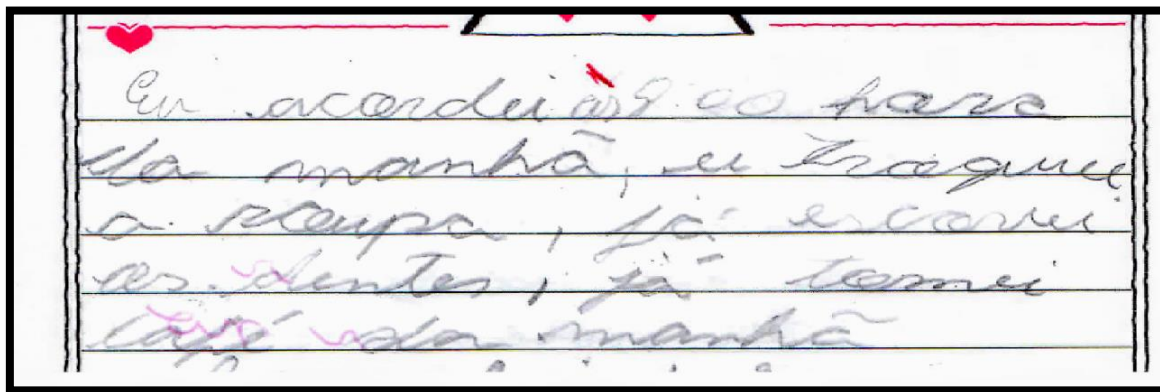 Eu acordei as 9:00 hora
da manhã, eu troquei
a roupa, já escovei
os dentes, já tomei
café da manhã